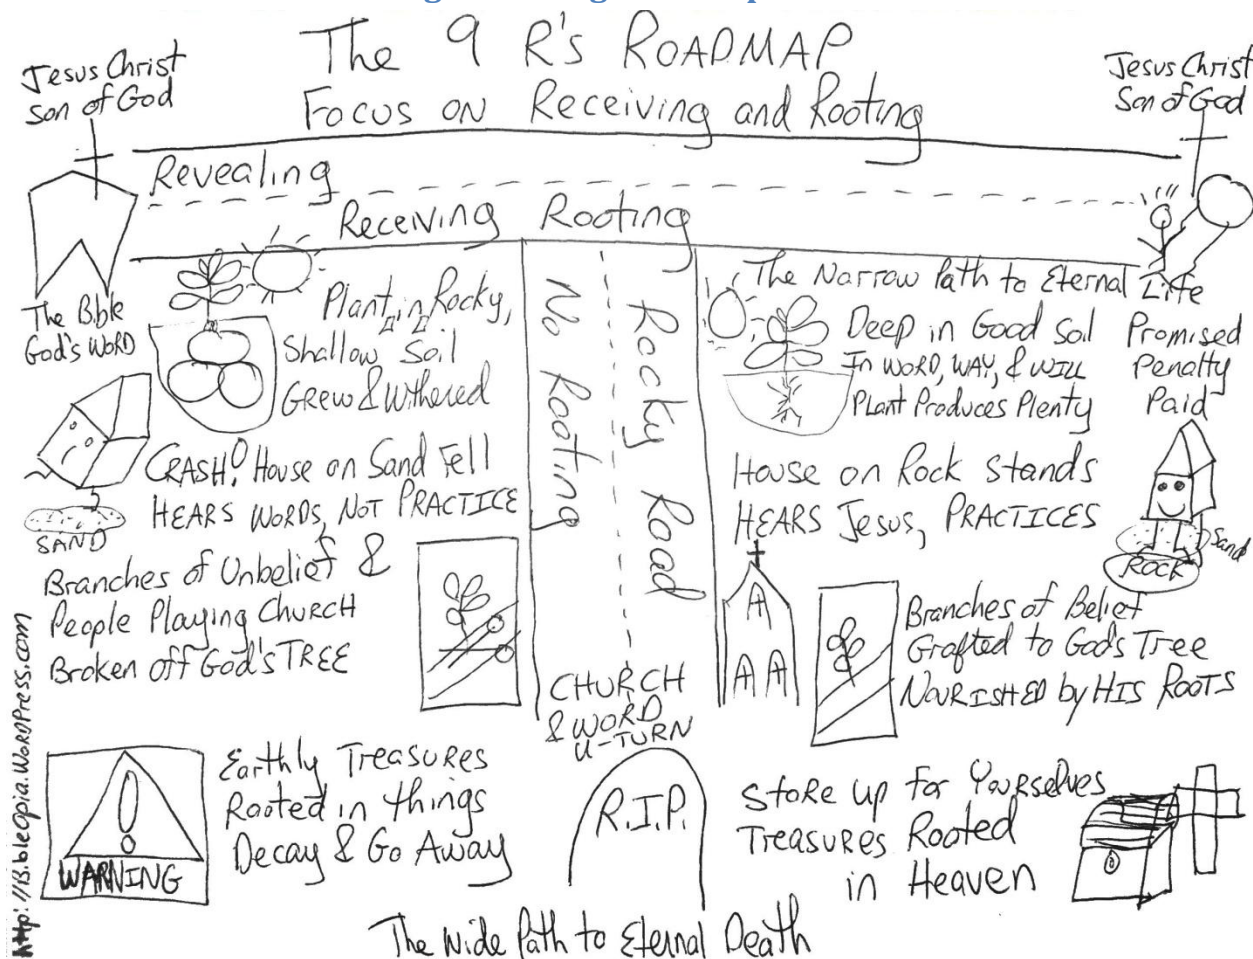 The 9 R's ROADMAP
Focus on Receiving and Rooting
Jesus Christ
Son of God
Jesus Christ
Son of God
Revealing
Receiving Rooting
The Bible
God's WORD
Plant in Rocky,
Shallow Soil
Grew & Withered
No Rooting
Rocky Road
The Narrow Path to Eternal Life
Deep in Good Soil
In WORD, WAY, & WILL
Plant Produces Plenty
Promised
Penalty
Paid
CRASH! House on Sand Fell
HEARS WORDS, NOT PRACTICE
SAND
House on Rock Stands
HEARS Jesus, PRACTICES
Sand
ROCK
Branches of Unbelief &
People Playing CHURCH
Broken off God's TREE
Branches of Belief
Grafted to God's Tree
NOURISHED by HIS ROOTS
CHURCH
& WORD
U-TURN
WARNING
Earthly Treasures
Rooted in things
Decay & Go Away
R.I.P.
Store up for Yourselves
Treasures Rooted
in Heaven
The Wide Path to Eternal Death
http://BibleOpia.WordPress.com